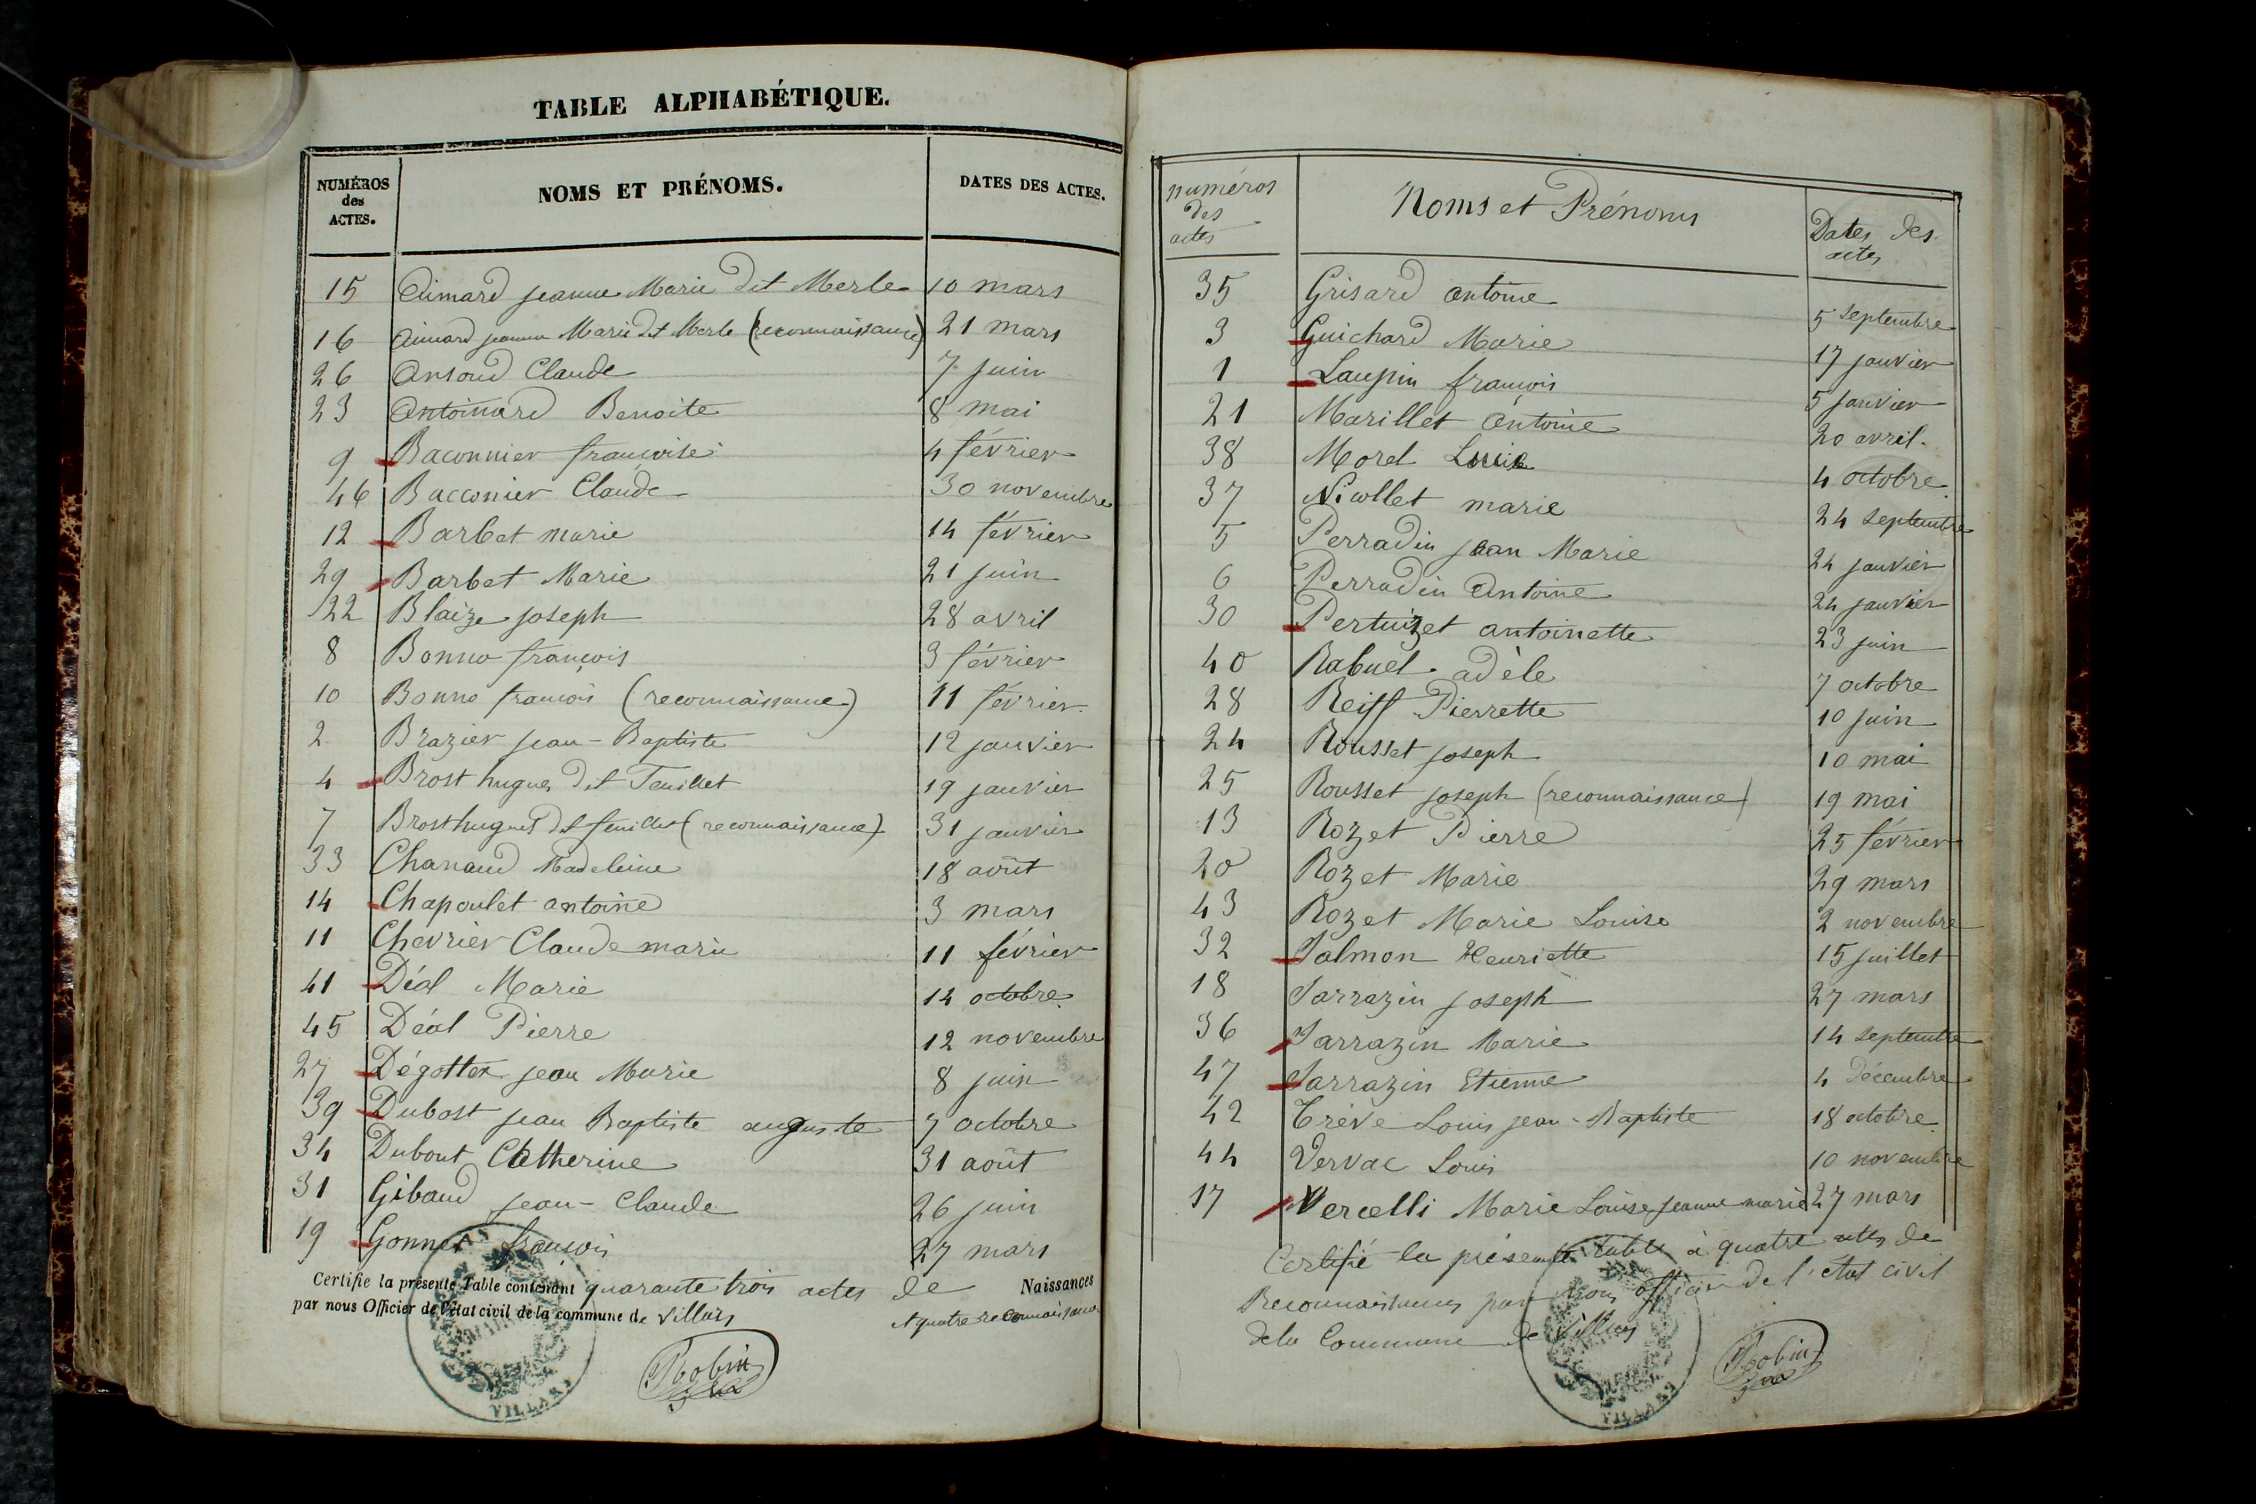 TABLE ALPHABÉTIQUE.
NUMÉROS des ACTES. NOMS ET PRÉNOMS. DATES DES ACTES.
15 Aimard jeanne Marie dit Merle 10 mars
16 Aimard jeanne Marie dit Merle (reconnaissance) 21 mars
26 Ansoud Claude 7 juin
23 Antoinard Benoite 8 mai
9 Baconnier françoise 4 février
46 Bacconier Claude 30 novembre
12 Barbet marie 14 février
29 Barbet Marie 21 juin
22 Blaize joseph 28 avril
8 Bonno françois 3 février
10 Bonno françois (reconnaissance) 11 février
2 Brazier jean-Baptiste 12 janvier
4 Brost hugues dit Feuillet 19 janvier
7 Brost hugues dit feuillet (reconnaissance) 31 janvier
33 Chanaud Madeleine 18 août
14 Chapoulet antoine 3 mars
11 Chevrier Claude marie 11 février
41 Déal Marie 14 octobre
45 Déal Pierre 12 novembre
27 Dégottex jean Marie 8 juin
39 Dubost jean Baptiste auguste 7 octobre
34 Dubout Catherine 31 août
31 Gibaud jean-Claude 26 juin
19 Gonnet françois 27 mars
Certifie la présente Table contenant quarante trois actes de Naissances
par nous Officier de l'état civil de la commune de Villars et quatre reconnaissances
Robin
VILLARS
numéros des actes Noms et Prénoms Dates des actes
35 Grisard antoine 5 septembre
3 Guichard Marie 17 janvier
1 Laupin françois 5 janvier
21 Marillet antoine 20 avril.
38 Morel 4 octobre
37 Nicollet marie 24 septembre
5 Perradin jean Marie 24 janvier
6 Perradin Antoine 24 janvier
30 Pertuizet antoinette 23 juin
40 Rabuel adèle 7 octobre
28 Reiff Pierrette 10 juin
24 Rousset joseph 10 mai
25 Rousset joseph (reconnaissance) 19 mai
13 Rozet Pierre 25 février
20 Rozet Marie 29 mars
43 Rozet Marie Louise 2 novembre
32 Salmon Henriette 15 juillet
18 Sarrazin joseph 27 mars
36 Sarrazin Marie 14 septembre
47 Sarrazin Etienne 4 Décembre
42 Trève Louis jean-Baptiste 18 octobre
44 Vervac Louis 10 novembre
17 Vercelli Marie Louise jeanne marie 27 mars
Certifié la présente table à quatre actes de
Reconnaissances par nous officier de l'état civil
de la Commune de Villars
Robin
VILLARS